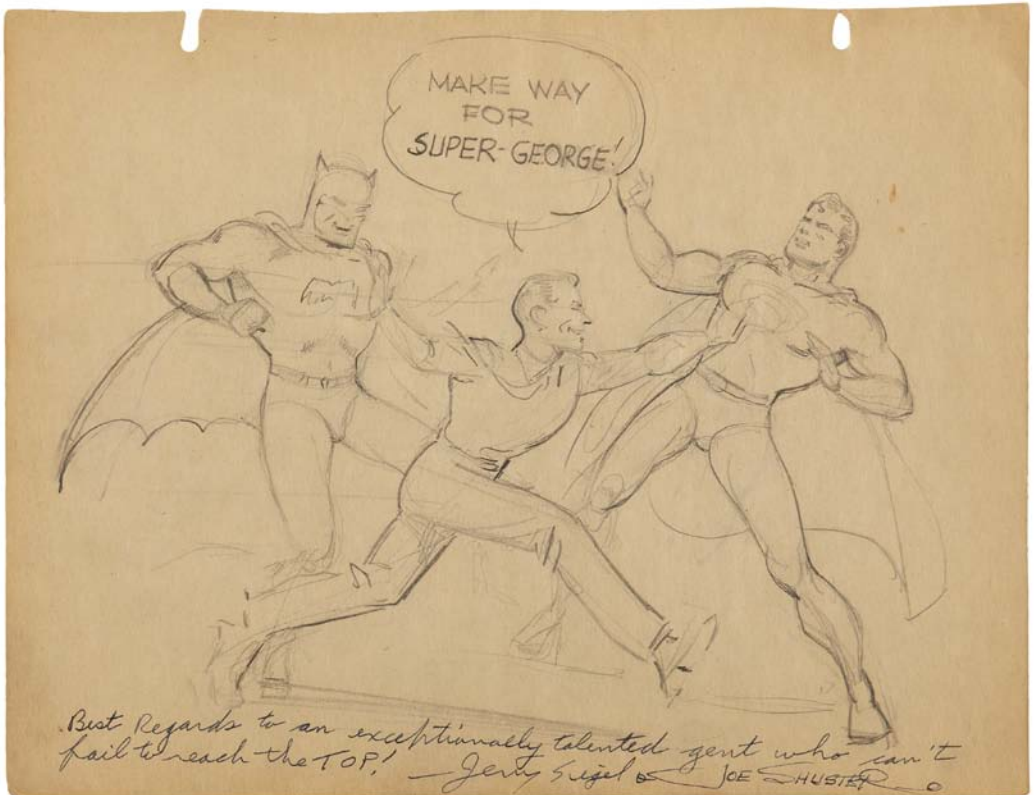 MAKE WAY
FOR
SUPER-GEORGE!
Best Regards to an exceptionally talented gent who can't
fail to reach the TOP! — Jerry Siegel & JOE SHUSTER